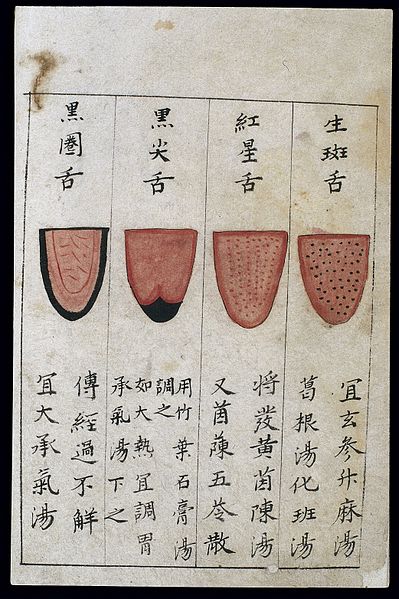 生斑舌
宜玄参升麻湯
葛根湯化斑湯
紅星舌
将發黄茵陳湯
又茵蔯五苓散
黒尖舌
用竹葉石膏湯
調之
如大熱宜調胃
承氣湯下之
黒圏舌
傳經過不解
宜大承氣湯